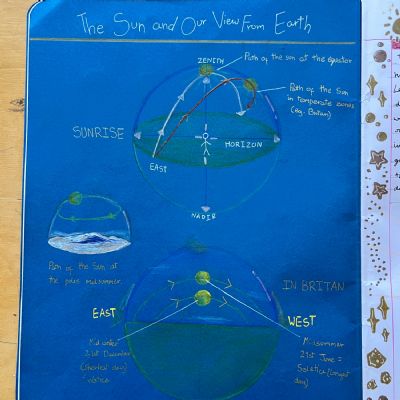 The Sun and Our View From Earth
ZENITH
Path of the sun at the equator
Path of the Sun
in temperate zones
(eg. Britan)
SUNRISE
HORIZON
EAST
NADIR
Path of the Sun at
the poles midsummer
IN BRITAN
EAST
WEST
Mid winter
21st December
(Shortest day)
Midsommer
21st June =
Solstice (longest
day)